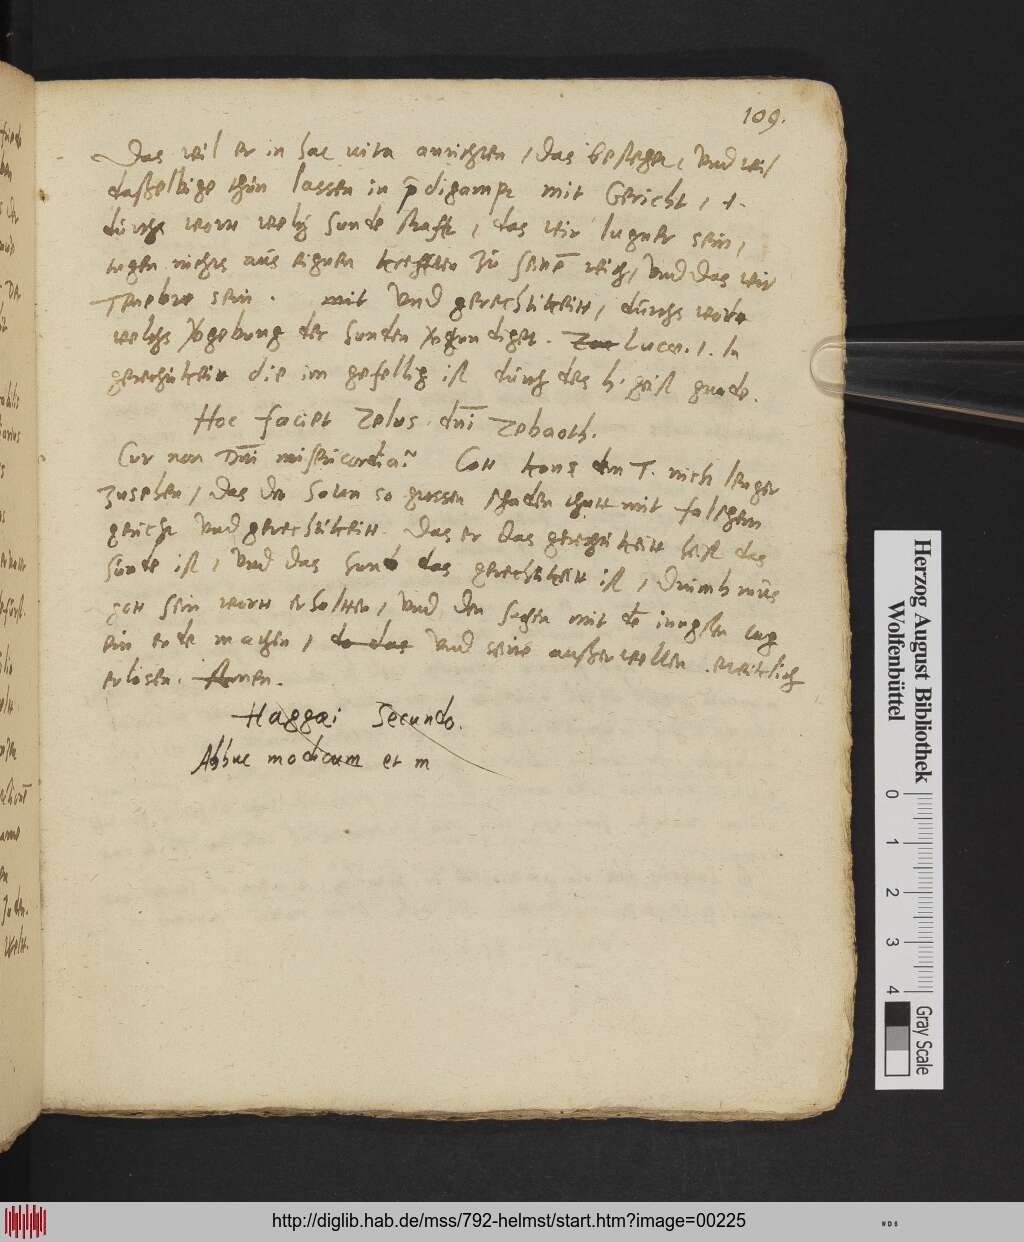 109.
Das wil er in hac vita anrichten / das befehen / vnd wil
daßelbige thun lassen in p̄digampt mit Gericht, .1.
durchs wort welchs sunde strafft, das wir lugner sein,
tugen nichts aus eignen krefften zu seinē reich, Vnd das wir
Tenebre sein. mit Vnd gerechtikeitt, durchs wort
welchs vergebung der sunden verkundiget. Zac Luce. 1. In
gerechtikeitt die im gefellig ist durch des h. geist gnade.
Hoc faciet Zelus dn̄i Zebaoth.
Cur non Dn̄i misericordia? Gott kans dem T. nich lenger
zusehen / das der Satan so grossen schaden thutt mit falschem
gericht Vnd gerechtikeitt. Das er das gerechtikeitt heist das
sunde ist, Vnd das sund das gerechtikeitt ist, Drumb mus
gott sein wortt erhalten, Vnd den sachen mit dē iungsten tag
ein ende machen, do das Vnd seine außerwelten entlich
erlosen. Amen.
Haggai Secundo.
Adhuc modicum et m
Herzog August Bibliothek
Wolfenbüttel
0 1 2 3 4
Gray Scale
http://diglib.hab.de/mss/792-helmst/start.htm?image=00225
WDB